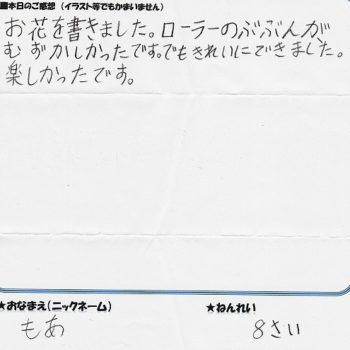 ■本日のご感想（イラスト等でもかまいません）
お花を書きました。ローラーのぶぶんが
むずかしかったです。でもきれいにできました。
楽しかったです。
★おなまえ（ニックネーム） ★ねんれい
もあ 8さい